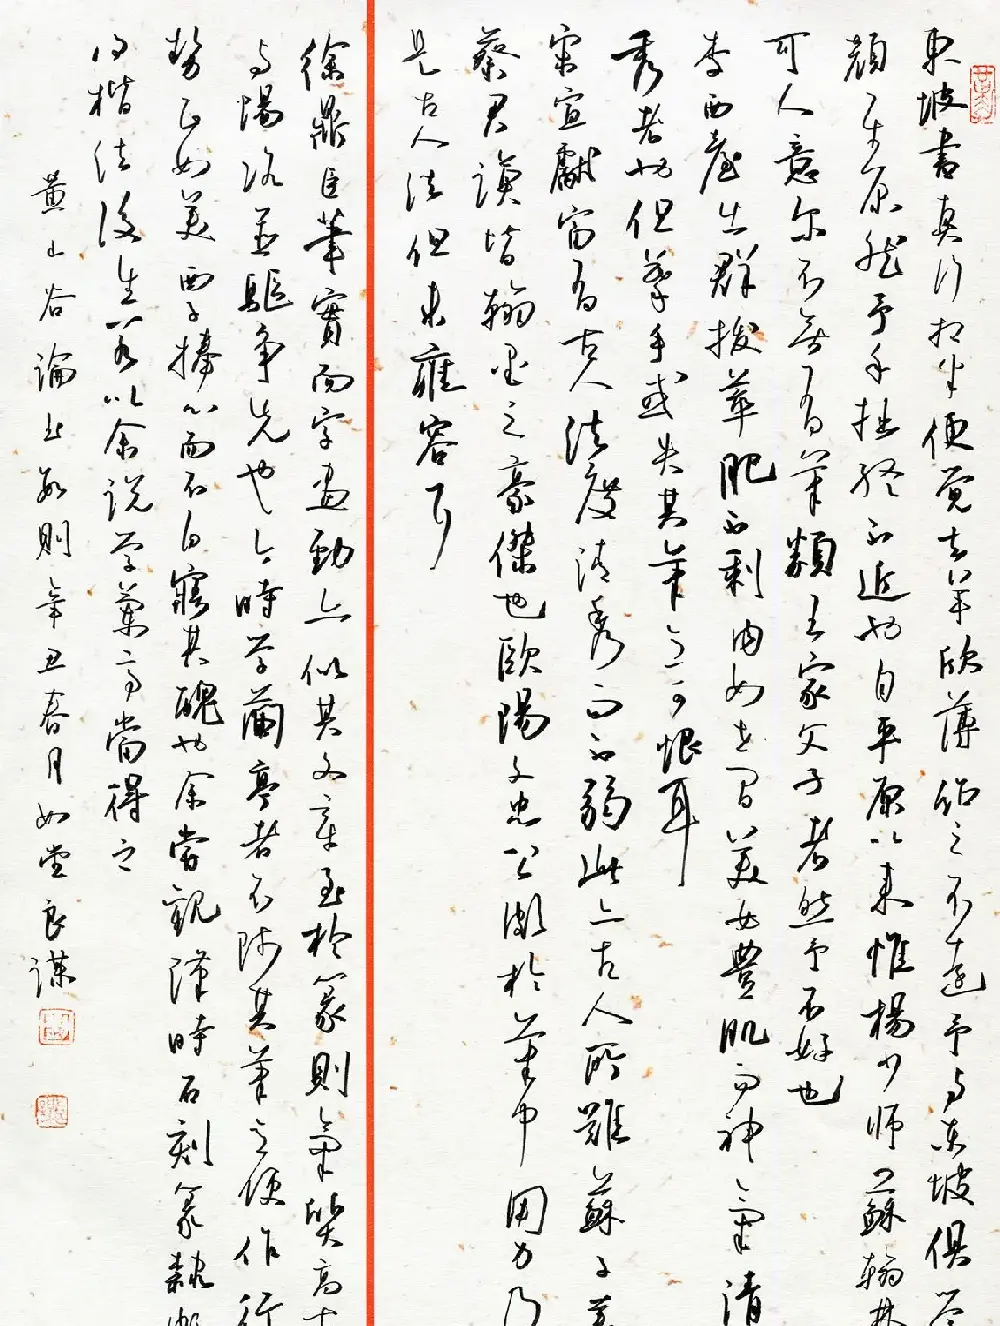 東坡書真行相半便覺去羊欣薄紹之不遠予與東坡俱學
顏平原然予手拙終不近也自平原以來惟楊少師蘇翰林
可人意尔不無有筆類王家父子者然予不好也
李西臺出群拔萃肥不剩肉如世間美女豐肌而神氣清
秀者也但摹手或失其筆意可恨耳
宋宣獻富有古人法度清秀而不弱此亦古人所難蘇子美
蔡君謨皆翰墨之豪傑也歐陽文忠公頗於筆中用力乃
是古人法但未雍容耳
徐鼎臣筆實而字畫勁亦似其文章至於篆則氣質高古
與陽冰並驅爭先也今時學蘭亭者不師其筆意便作行
勢正如美西子捧心而不自寤其醜也余嘗觀漢時石刻篆隸頗
得楷法後生若以余說學蘭亭當得之
黃山谷論書數則辛丑春月如堂良謀